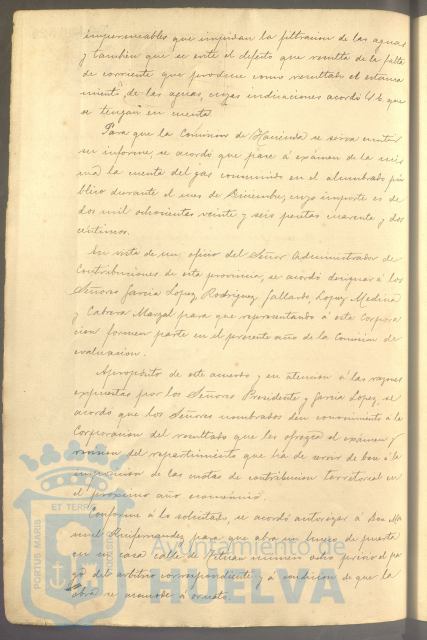 impermeables que impidan la filtracion de las aguas
y tambien que se evite el defecto que resulta de la falta
de corriente que produce como resultado el estanca
miento de las aguas, cuyas indicaciones acordó S.E. que
se tengan en cuenta.
Para que la Comision de Hacienda se sirva emitir
su informe, se acordó que pase á exámen de la mis
ma la cuenta del gas consumido en el alumbrado pú
blico durante el mes de Diciembre, cuyo importe es de
dos mil ochocientas veinte y seis pesetas cuarenta y dos
céntimos.
En vista de un oficio del Señor Administrador de
Contribuciones de esta provincia, se acordó designar á los
Señores Garcia Lopez, Rodriguez Gallardo, Lopez Medina
y Cabrera Marzal para que representando á esta Corpora
cion formen parte en el presente año de la Comision de
evaluacion.
Apropósito de este acuerdo y en atencion á las razones
expuestas por los Señores Presidente y Garcia Lopez, se
acordó que los Señores nombrados den conocimiento á la
Corporacion del resultado que les ofrezca el exámen y
del repartimiento que ha de servir de base á la
imposicion de las cuotas de contribucion territorial en
el próximo año económico.
Conforme á lo solicitado, se acordó autorizar á Don Ma
nuel Ruifernandez para que abra un hueco de puerta
en su casa calle número ocho, previo el pa
go del arbitrio correspondiente y á condicion de que la
obra se acomode á ornato.
PORTUS MARIS ET TERRÆ
Ayuntamiento de
HUELVA